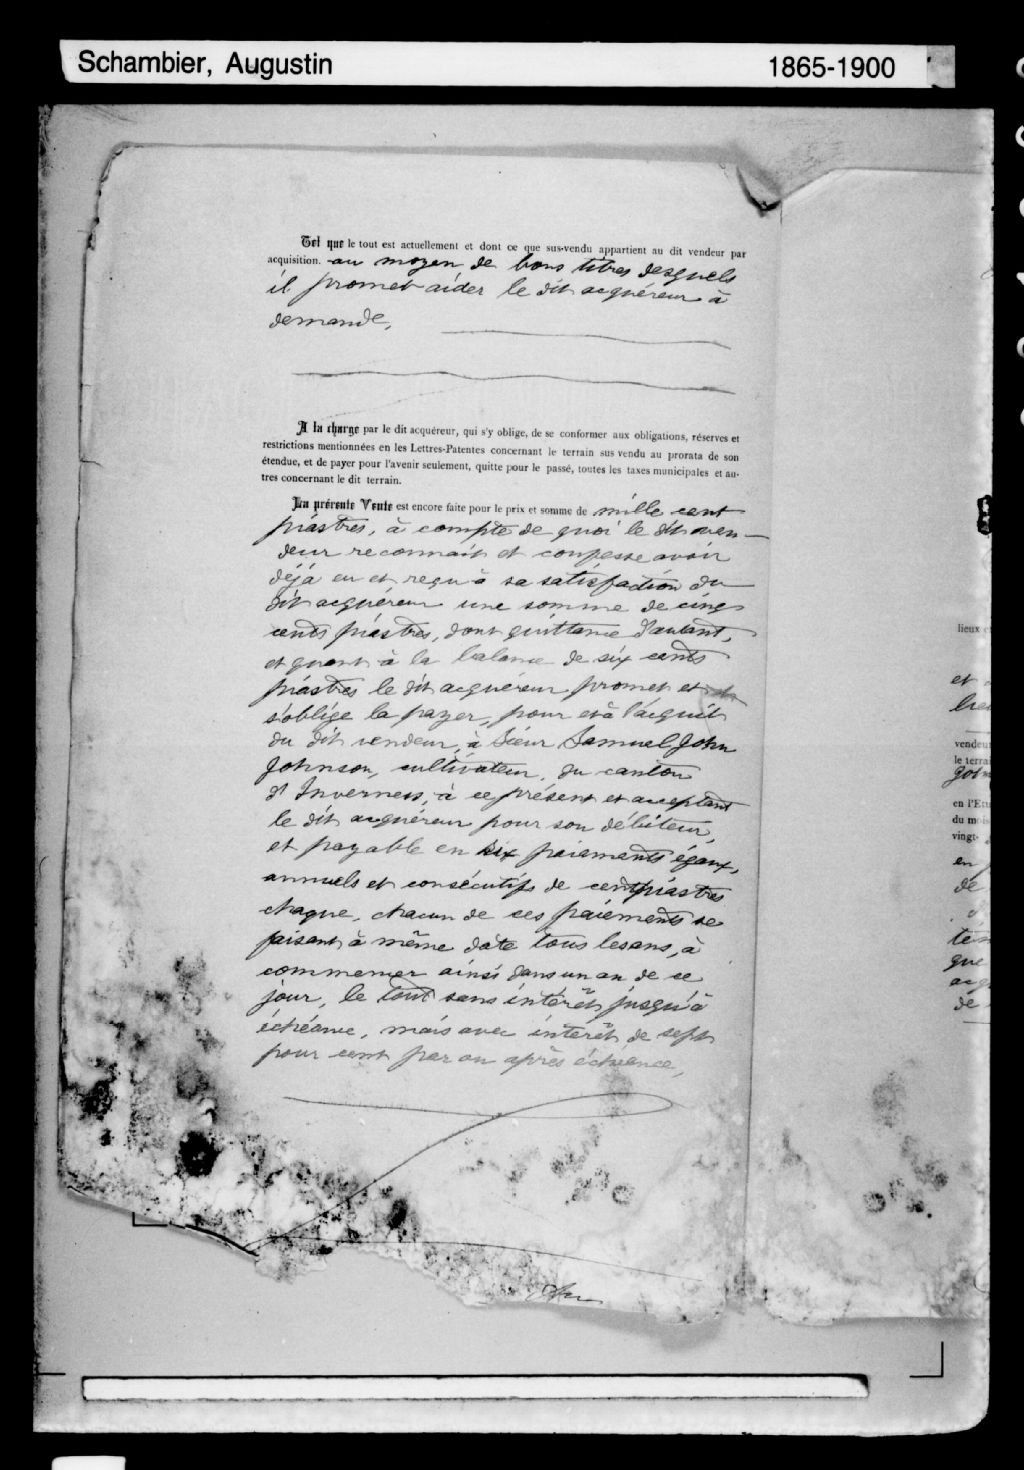 Schambier, Augustin 1865-1900
Tel que le tout est actuellement et dont ce que sus-vendu appartient au dit vendeur par
acquisition. au moyen de bons titres desquels
il promet aider le dit acquéreur à
demande.
A la charge par le dit acquéreur, qui s'y oblige, de se conformer aux obligations, réserves et
restrictions mentionnées en les Lettres-Patentes concernant le terrain sus vendu au prorata de son
étendue, et de payer pour l'avenir seulement, quitte pour le passé, toutes les taxes municipales et au-
tres concernant le dit terrain.
La présente Vente est encore faite pour le prix et somme de mille cent
piastres, à compte de quoi le dit ven-
deur reconnait et confesse avoir
déjà eu et reçu à sa satisfaction du
dit acquéreur une somme de cinq
cents piastres, dont quittance d'autant,
et quant à la balance de six cents
piastres le dit acquéreur promet et
s'oblige la payer, pour et à l'acquit
du dit vendeur, à Sieur Samuel John
Johnson, cultivateur, du canton
d'Inverness, à ce présent et acceptant
le dit acquéreur pour son débiteur,
et payable en six paiements égaux,
annuels et consécutifs de cent piastres
chaque, chacun de ces paiements se
faisant à même date tous les ans, à
commencer ainsi dans un an de ce
jour, le tout sans intérêt jusqu'à
échéance, mais avec intérêt de sept
pour cent par an après échéance,
lieux
et
vendeu
le terrai
en l'Et
du mois
vingt-
en
de
que
de